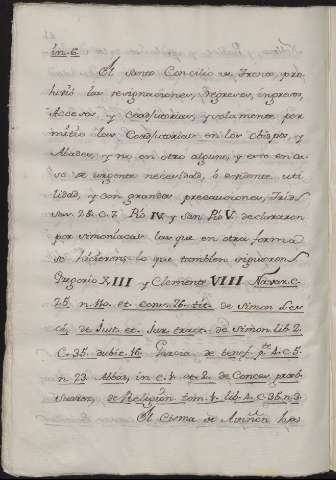 in. 6.
El santo Concilio de Trento, pro
hivió las resignaciones, Regresos, ingresos,
Accesos, y Coadjutorias, y solamente per
mitió las Coadjutorias en los obispos, y
Abades, y no en otro alguno, y esto en ca
so de urgente necesidad, ó evidente uti
lidad, y con grandes precauciones, Trid.
ses. 25. c. 7. Pio IV y San Pio V. declararon
por simoniacas las que en otra forma
se hicieran lo que tambien siguieron
Gregorio XIII y Clemente VIII Navar. c.
25. n. 110. et cons. 76. tit. de Simon
de Just. et Jur. tract. de Simon. lib. 2.
C. 35. dubit. 16. Garcia de benef. p.te 4. c. 5.
n. 23. Abbas, in c. 1. et 2. de Conces. praeb.
Suarez, de Religion tom. 1. lib. 4. c. 36. n. 3.
El Cisma de Aviñon hizo